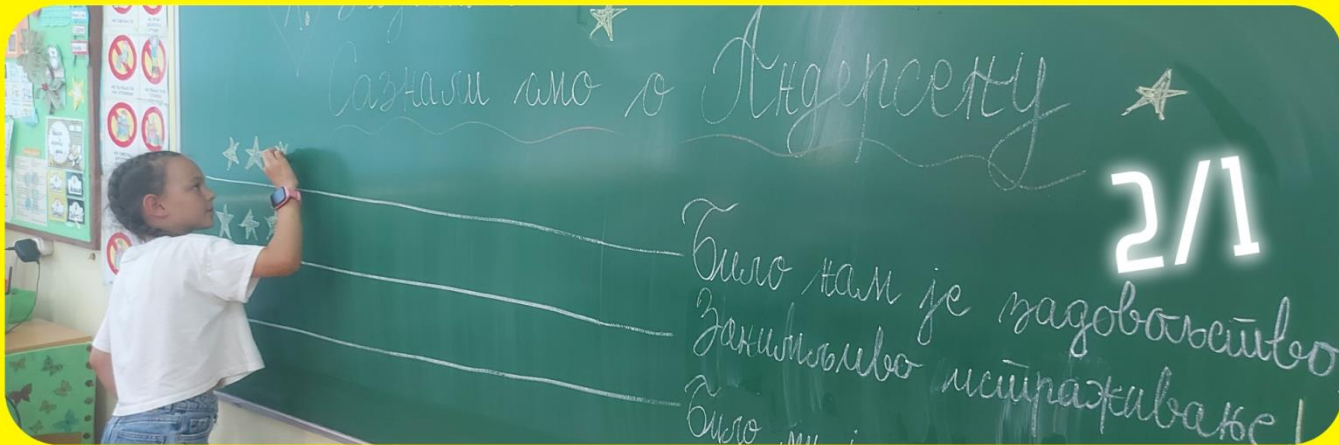 Сазнали смо о Андерсену
2/1
Било нам је задовољство
Занимљиво истраживање!
Било ми је